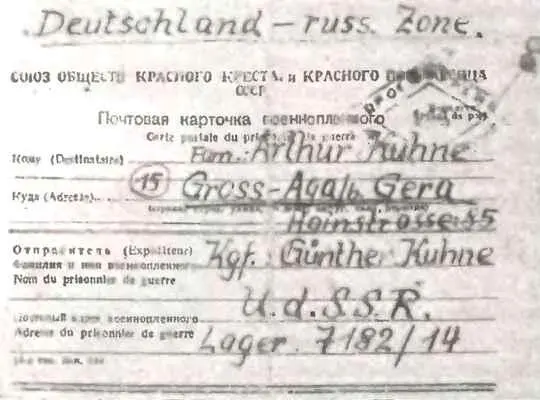 Deutschland – russ. Zone.
СОЮЗ ОБЩЕСТВ КРАСНОГО КРЕСТА и КРАСНОГО
СССР
Почтовая карточка военнопленного
Carte postale du prisonnier de guerre
Кому (Destinataire) Fam.: Arthur Kuhne
15
Куда (Adresse) Gross-Aga b. Gera
Hainstrasse 55
Отправитель (Expéditeur) Kgf. Günther Kuhne
Фамилия и имя военнопленного
Nom du prisonnier de guerre
U.d.S.S.R.
Почтовый адрес военнопленного
Adresse du prisonnier de guerre Lager 7182/14